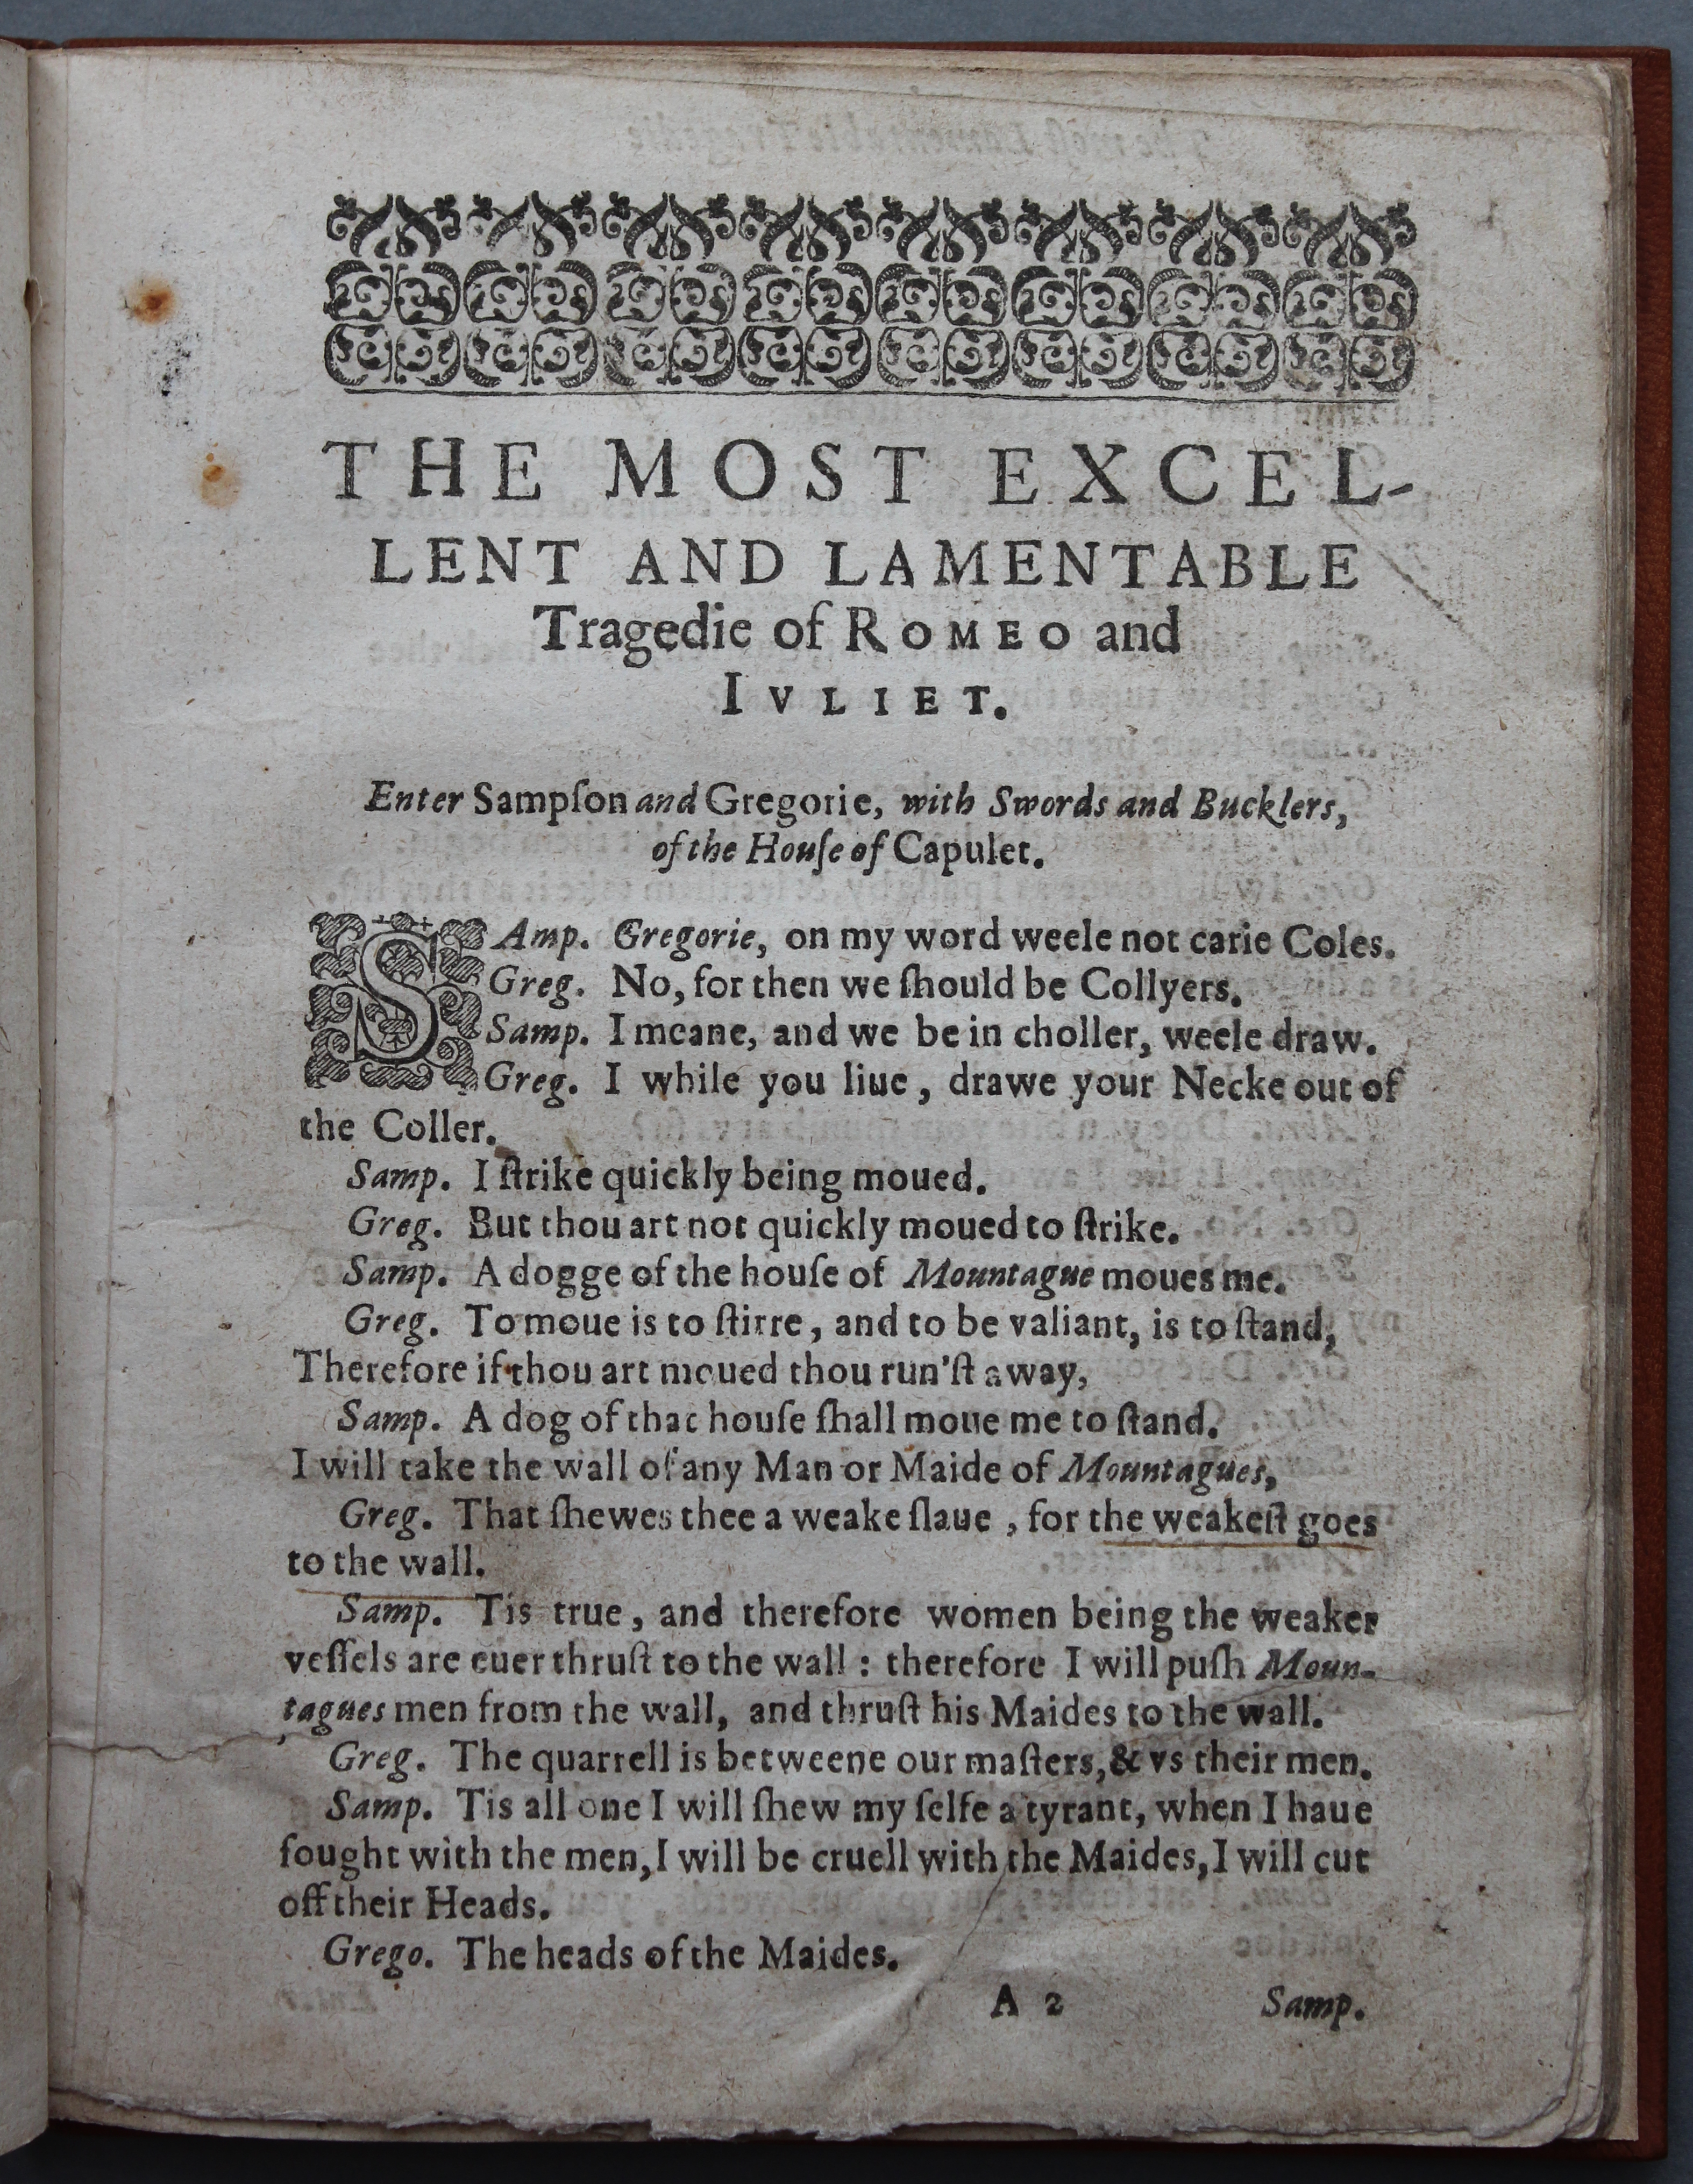 THE MOST EXCEL-
LENT AND LAMENTABLE
Tragedie of ROMEO and
IVLIET.
Enter Sampſon and Gregorie, with Swords and Bucklers,
of the Houſe of Capulet.
SAmp. Gregorie, on my word weele not carie Coles.
Greg. No, for then we ſhould be Collyers.
Samp. I meane, and we be in choller, weele draw.
Greg. I while you liue, drawe your Necke out of
the Coller.
Samp. I ſtrike quickly being moued.
Greg. But thou art not quickly moued to ſtrike.
Samp. A dogge of the houſe of Mountague moues me.
Greg. To moue is to ſtirre, and to be valiant, is to ſtand,
Therefore if thou art moued thou run'ſt away,
Samp. A dog of that houſe ſhall moue me to ſtand.
I will take the wall of any Man or Maide of Mountagues,
Greg. That ſhewes thee a weake ſlaue, for the weakeſt goes
to the wall.
Samp. Tis true, and therefore women being the weaker
veſſels are euer thruſt to the wall: therefore I will puſh Moun-
tagues men from the wall, and thruſt his Maides to the wall.
Greg. The quarrell is betweene our maſters, & vs their men.
Samp. Tis all one I will ſhew my ſelfe a tyrant, when I haue
fought with the men, I will be cruell with the Maides, I will cut
off their Heads.
Grego. The heads of the Maides.
A 2 Samp.